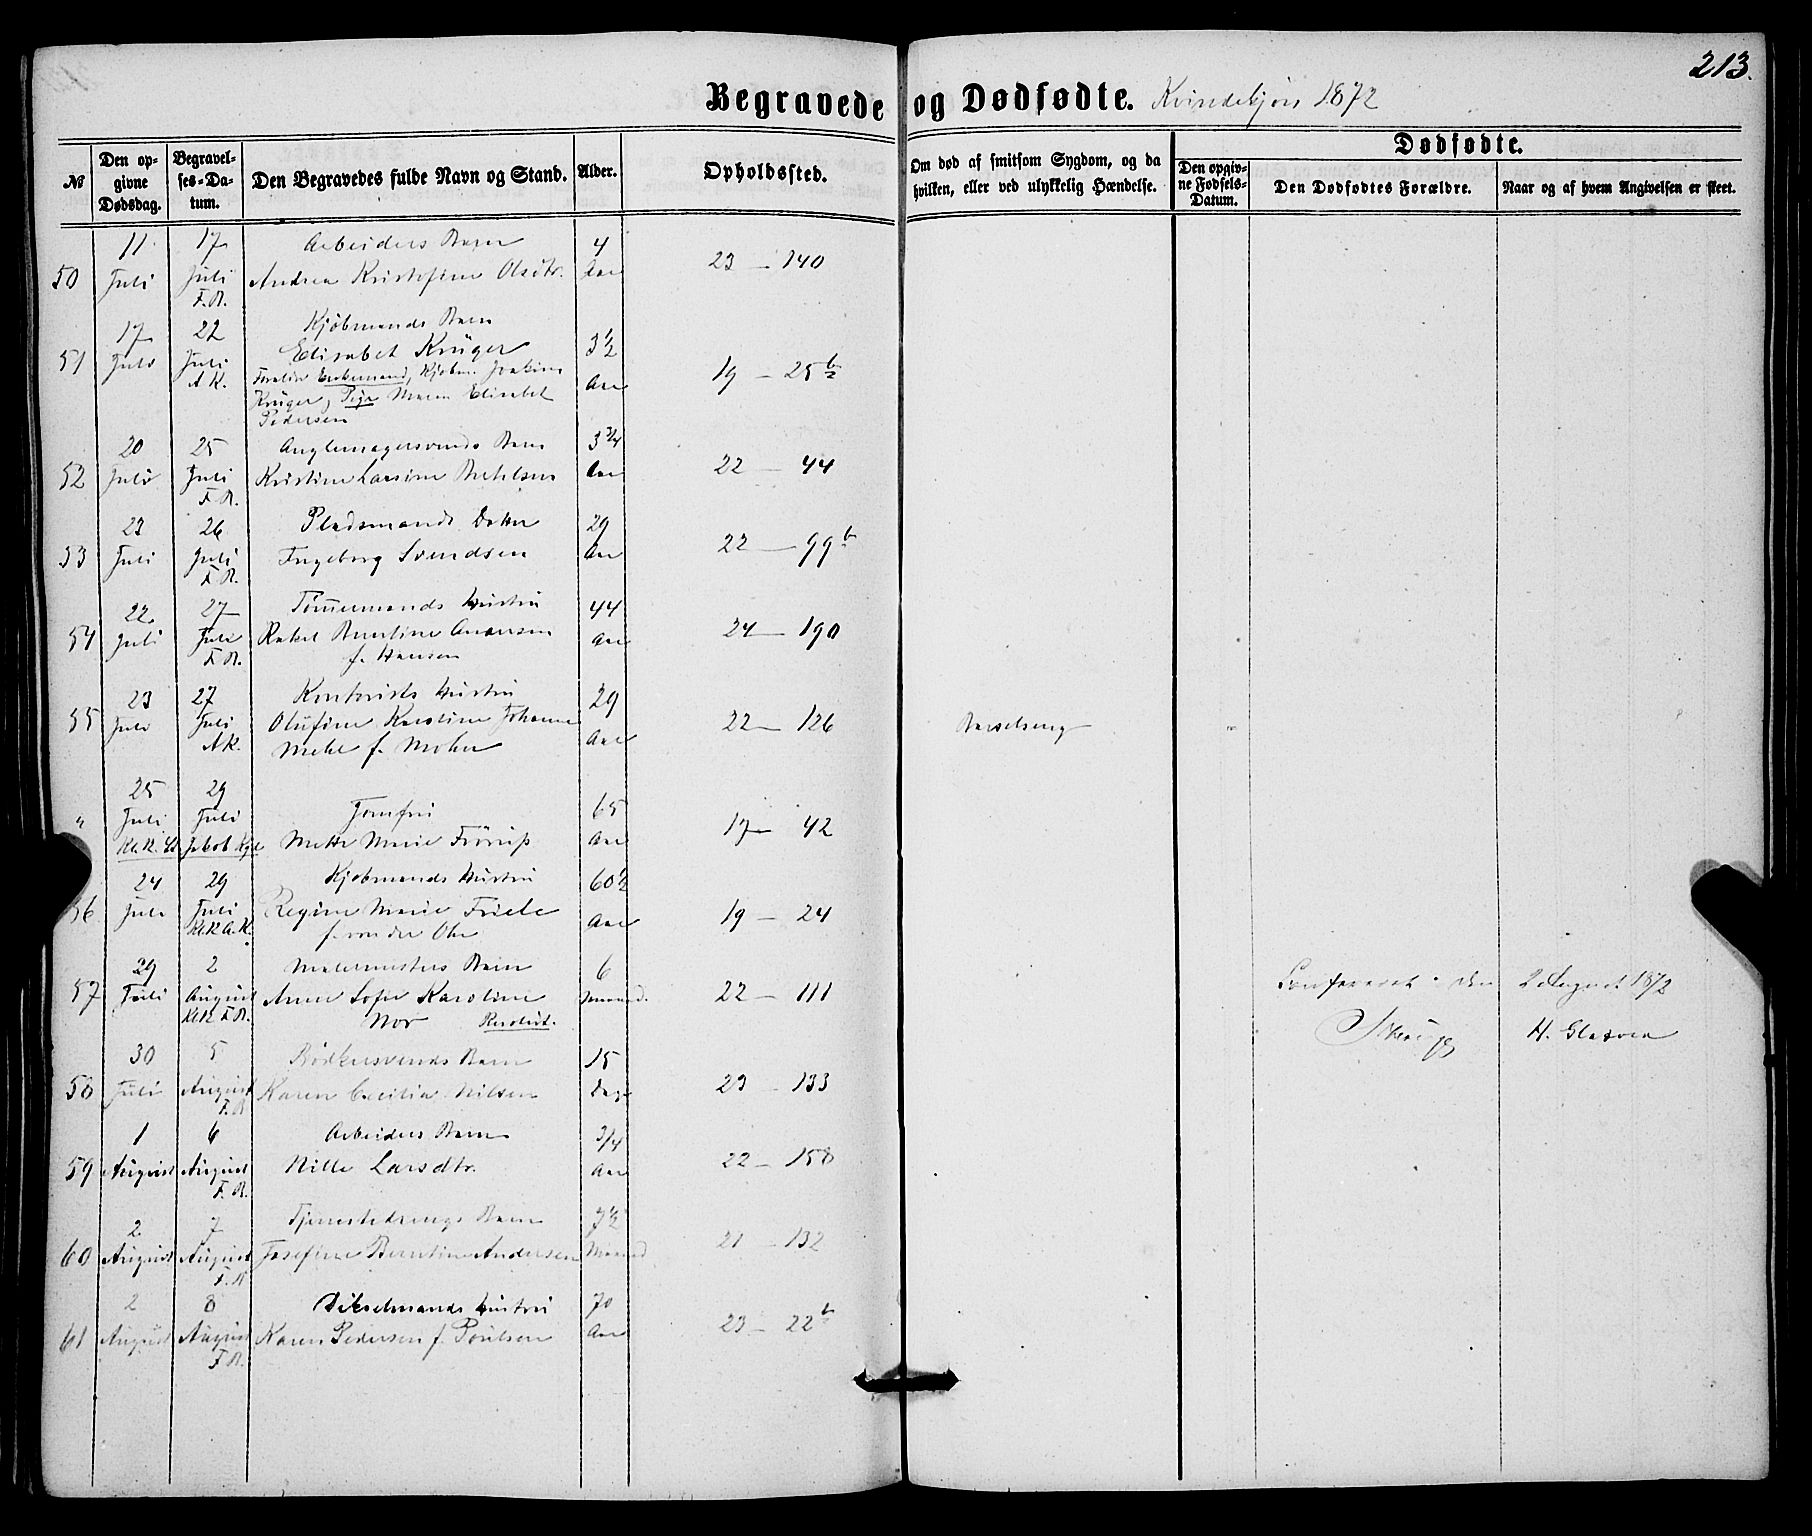 213.
Begravede og Dødfødte. Kvindekjøn 1872
№
Den op-
givne
Dødsdag.
Begravel-
ses-Da-
tum.
Den Begravedes fulde Navn og Stand.
Alder.
Opholdssted.
Om død af smitsom Sygdom, og da
hvilken, eller ved ulykkelig Hændelse.
Dødfødte.
Den opgiv-
ne Fødsels-
Datum.
Den Dødfødtes Forældre.
Naar og af hvem Angivelsen er skeet.
11 17 Arbeiders Barn 4
50 Juli Juli Andrea Kristofine Olsdtr. Aar 23 — 140
F.R.
17 22 Kjøbmands Barn
51 Juli Juli Elisabet Krüger 3½ 19 — 25b
A.K. Forældre Enkemand, Kjøbm. Joakim Aar
Krüger, Pige Maren Elisabet
Pedersen
20 25 Barn 3¾
52 Juli Juli Kristine Aar 22 — 44
F.R.
23 26 Pladsmands Datter 29
53 Juli Juli Ingeborg Svendsen Aar 22 — 99b
F.R.
22 27 Tømmermands Hustru 44
54 Juli Juli Rakel Berntine Andersen Aar 24 — 190
F.R. f. Hansen
23 27 Kontorists Hustru 29
55 Juli Juli Olufine Karoline Johanne 22 — 126 Barselseng
A.K. f. Aar
25 29
" Juli Juli Jomfru 65
Jakob Mette Marie Aar 17 — 42
24 29 Kjøbmands Hustru 60½
56 Juli Juli Regine Marie Friele Aar 19 — 24
Kl.R A.K. f. von der Ohe
29 2 Malermesters Barn 6
57 Juli August Anne Sofie Karoline Maaned. 22 — 111 Confereret den 2 August 1872
Kl.R F.R. Nor H. Glatved
30 5 Bødkersvends Barn 15
58 Juli August Karen Cecilia Nilsen Dage 23 — 133
F.R
1 6 Arbeiders Barn 3/4
59 August August Nille Larsdtr. Aar 22 — 158
F.R.
2 7 Tjenestedrengs Barn 7½
60 August August Josefine Berntine Andersen Maaned 21 — 132
F.R
2 8 Hustru 70
61 August August Karen Pedersen f. Poulsen Aar 23 — 22b
F.R.